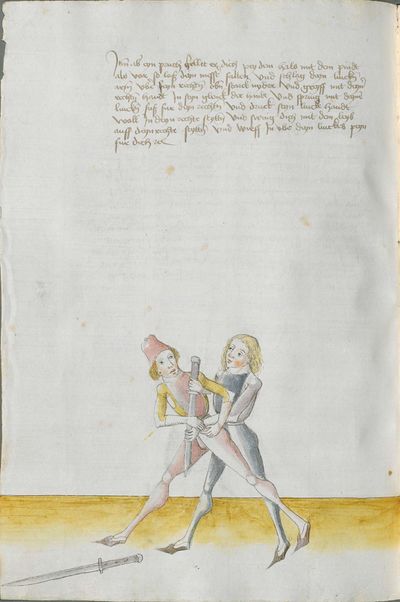 Item ob eyn paurh helltt er dich pey dem hals mit dem pindt
als vor so laß deyn messer fallen vnd schlag deyn lincken
arm vber seyn rechten obn starck nyder vnd greyff mit deyner
rechten handt In seyn glenck der seiner vnd spring mit deynem
lincken fuß fur deyn rechten vnd druck seyn linck handt
woll In deyn rechte seytten vnd swing dich mit dem leyb
auff deyn rechte seytten vnd wirff In vber deyn linckes peyn
fur dich etc